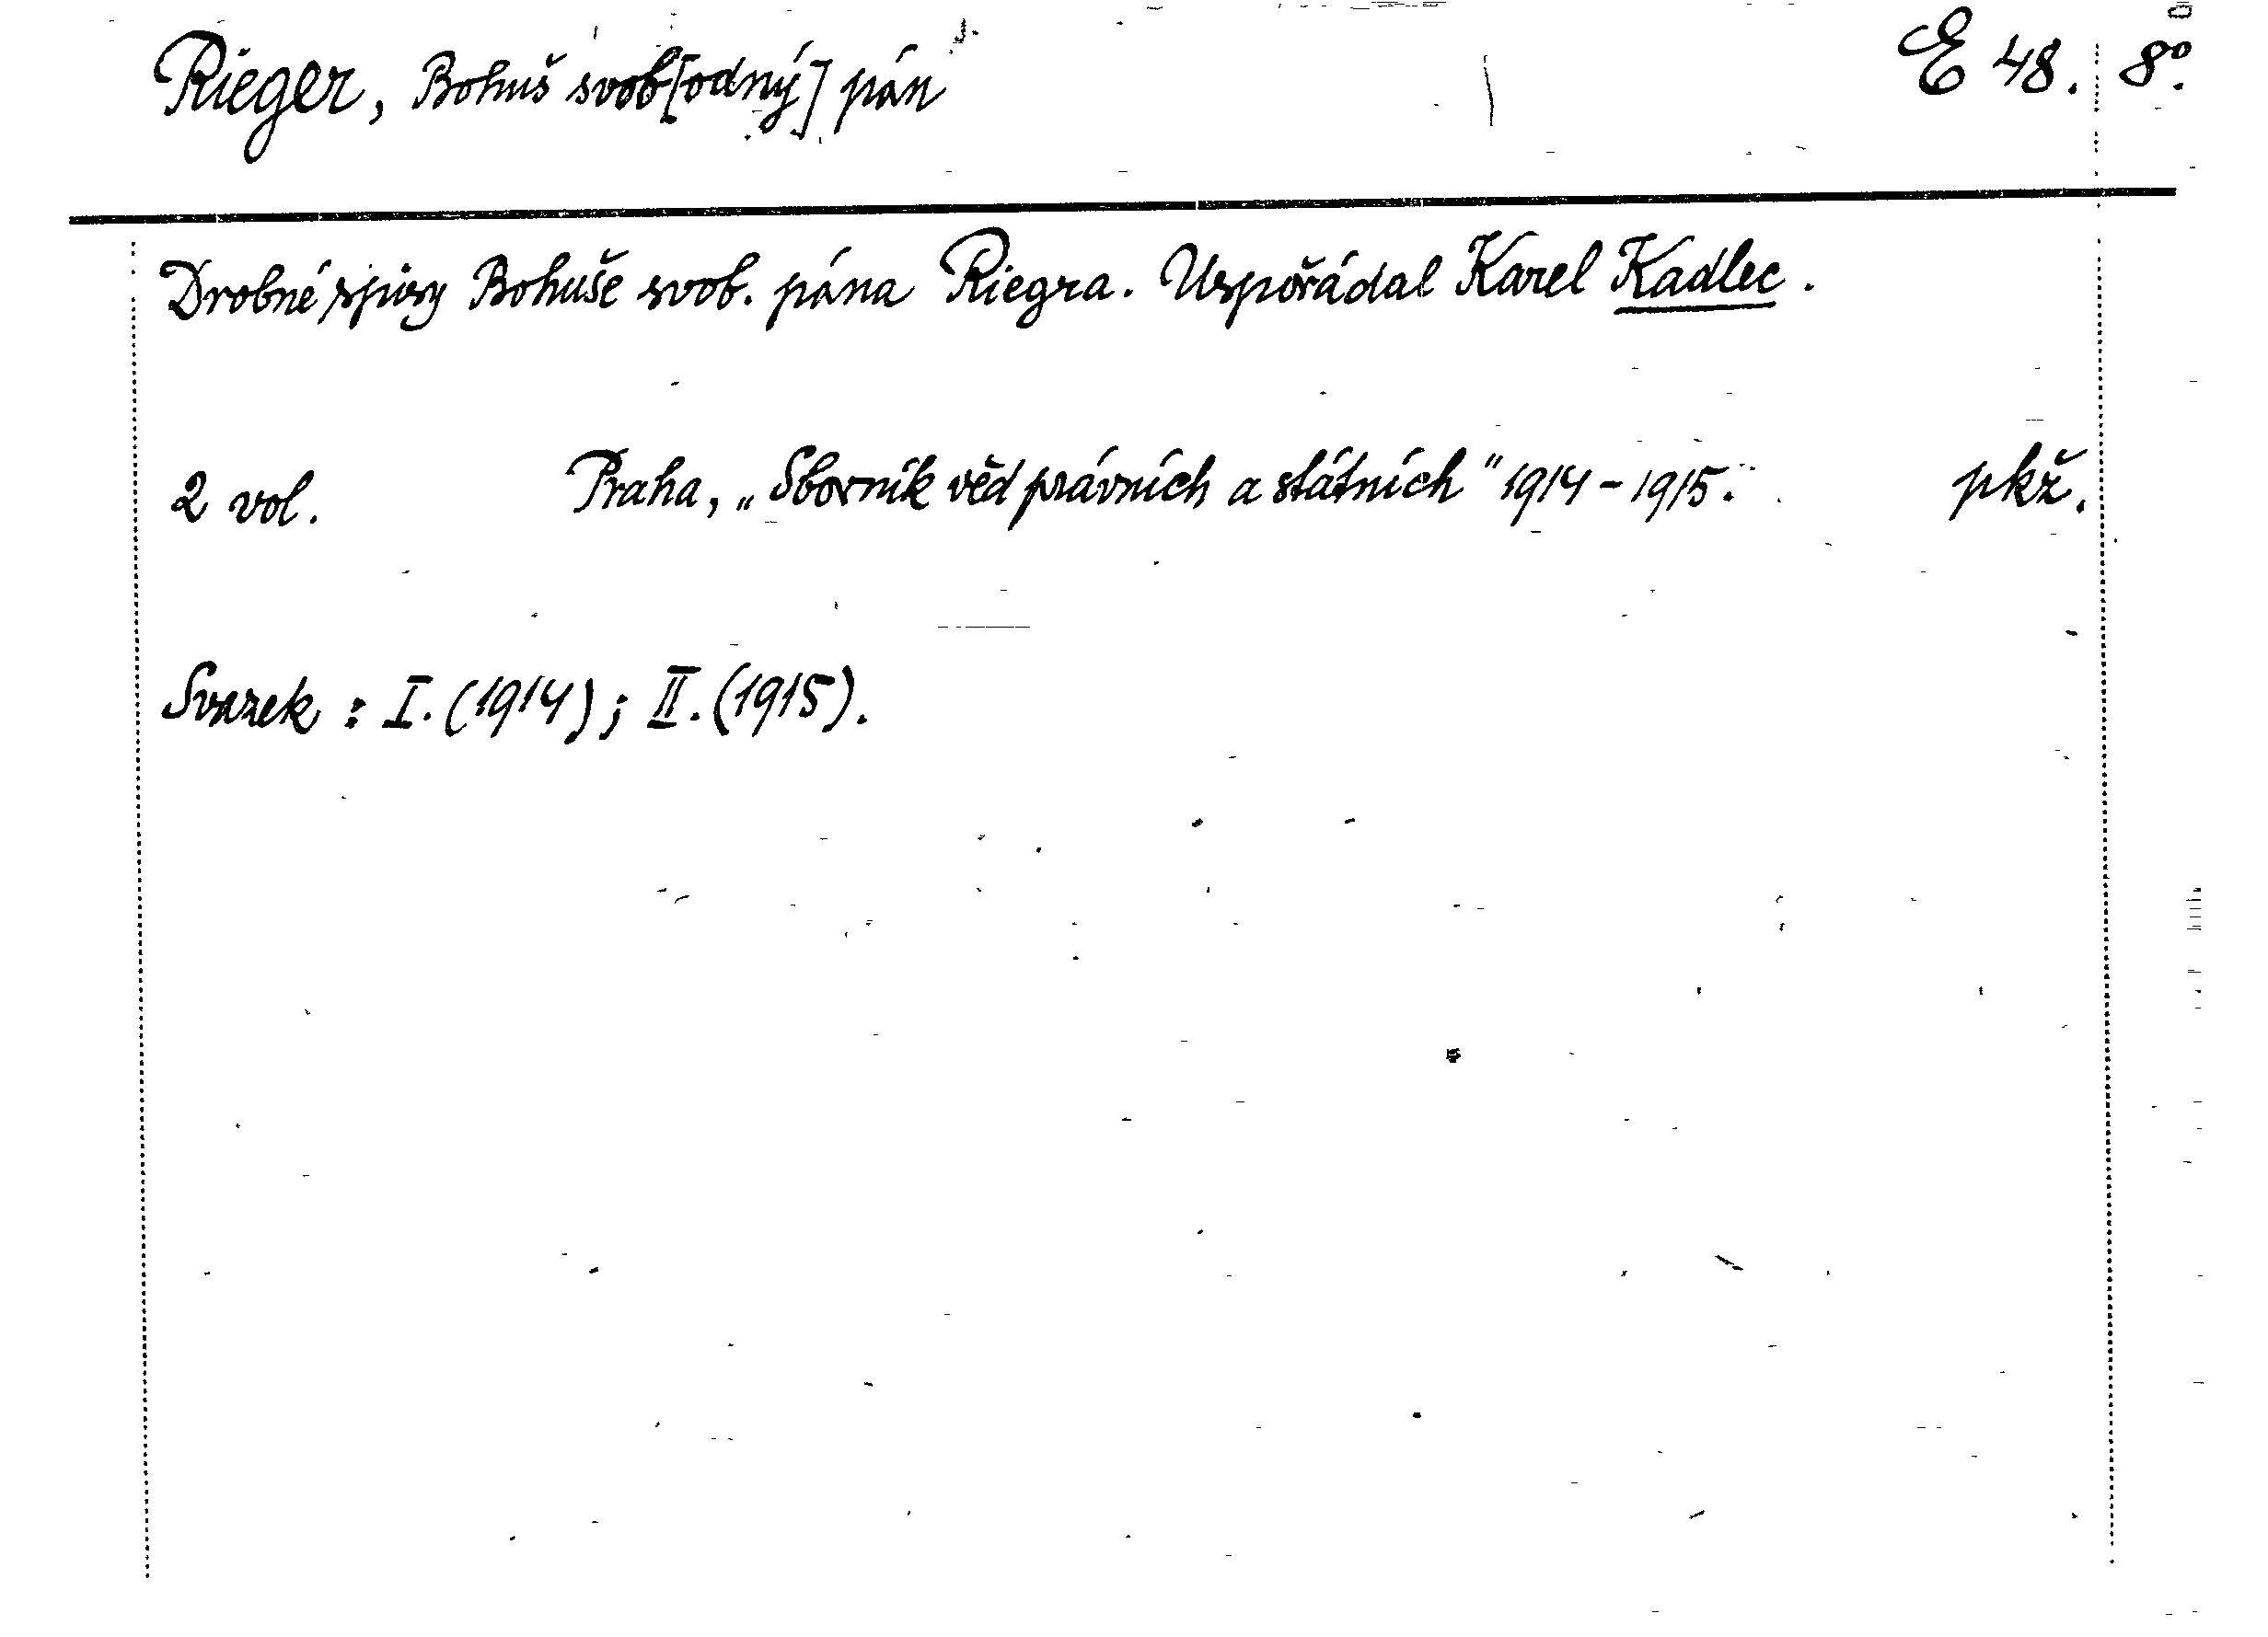 Rieger, Bohuš svob[odný] pán E 48. 8º.
Drobné spisy Bohuše svob. pána Riegra. Uspořádal Karel Kadlec.
2 vol. Praha, „Sborník věd právních a státních" 1914-1915. pkž.
Svazek: I. (1914); II. (1915).